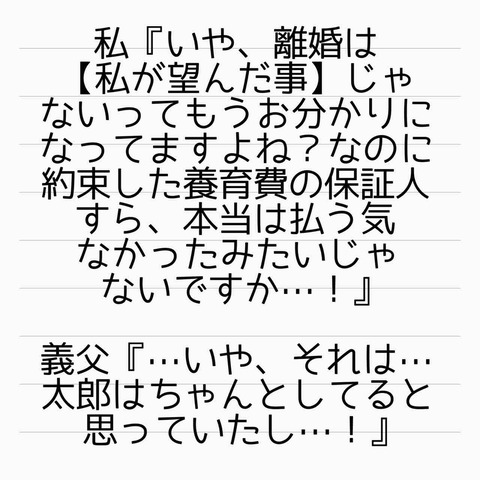 私『いや、離婚は
【私が望んだ事】じゃ
ないってもうお分かりに
なってますよね？なのに
約束した養育費の保証人
すら、本当は払う気
なかったみたいじゃ
ないですか…！』
義父『…いや、それは…
太郎はちゃんとしてると
思っていたし…！』